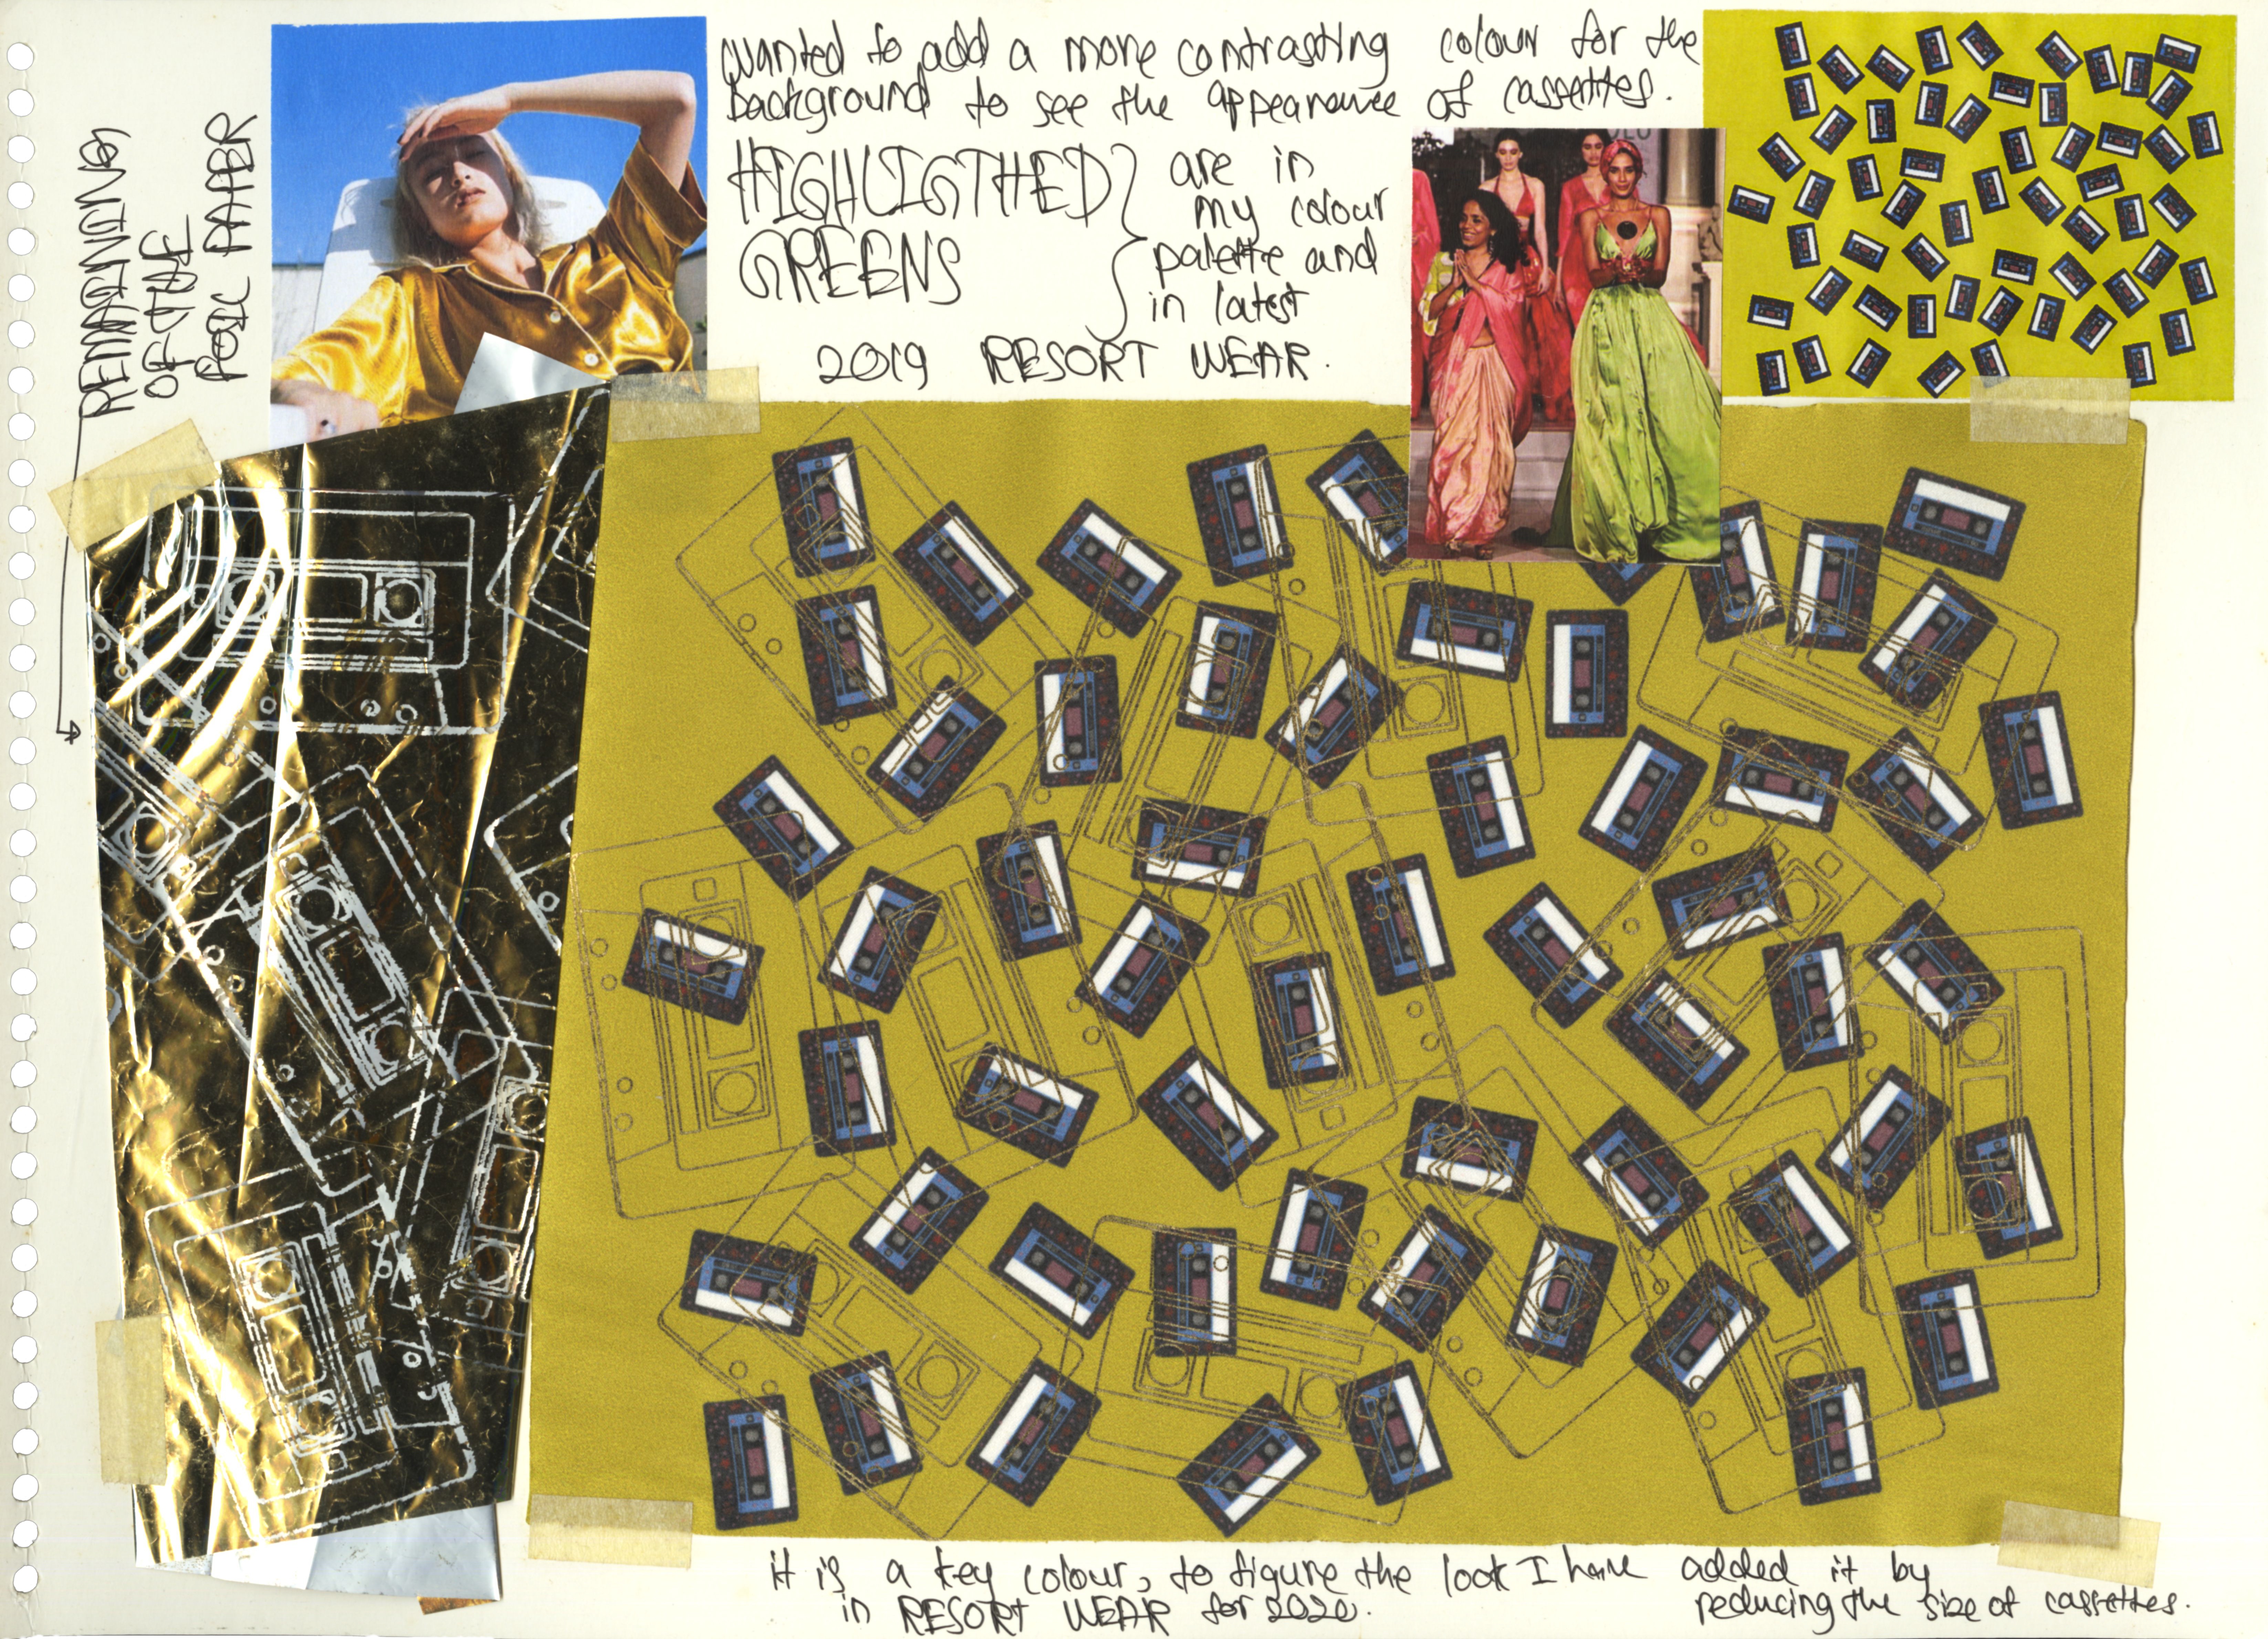 wanted to add a more contrasting colour for the
background to see the appearance of cassettes.
HIGHLIGTHED
GREENS
are in
my colour
palette and
in latest
2019 RESORT WEAR.
REMAINING
OF THE
FOIL PAPER
it is a key colour, to figure the look I have added it by
in RESORT WEAR for 2020.
reducing the size of cassettes.